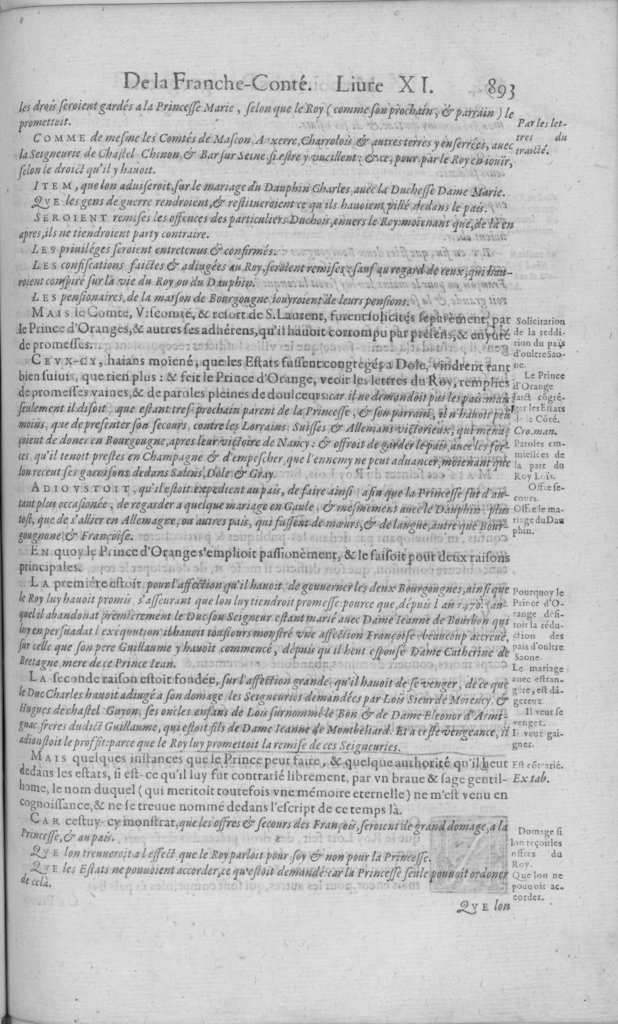 De la Franche-Conté. Liure XI. 893
les drois seroient gardés a la Princesse Marie, selon que le Roy (comme son prochain, & parrain) le
promettoit.
COMME de mesme les Comtés de Mascon, Auxerre, Charrolois & autres terres y enserrées, avec
la Seigneurie de Chastel Chinon, & Bar sur Seine si estre y vueillent: & ce, pour par le Roy en iouir,
selon le droict qu'il y hauoit.
ITEM, que lon aduiseroit, sur le mariage du Dauphin Charles, auec la Duchesse Dame Marie.
QVE les gens de guerre rendroient, & restitueroient ce qu'ils hauoient pillé dedans le païs.
SEROIENT remises les offences des particuliers Duchois, enuers le Roy: moienant que, de là en
apres, ils ne tiendroient party contraire.
LES priuiléges seroient entretenus & confirmés.
LES confiscations faictes & adiugées au Roy, seroient remises: sauf au regard de ceux, qui hau-
roient conspiré sur la vie du Roy ou du Dauphin.
LES pensionaires, de la maison de Bourgougne, iouyroient de leurs pensions.
MAIS le Comté, Viscomté, & resort de S. Laurent, furent solicités séparément, par
le Prince d'Oranges, & autres ses adhérens, qu'il hauoit corrompu par présens, & enyuré
de promesses.
CEVX-CY, haians moïené, que les Estats fussent congregés a Dole, vindrent tant
bien suiuis, que rien plus: & feit le Prince d'Orange, veoir les lettres du Roy, remplies
de promesses vaines, & de paroles pleines de doulceurs: car il ne demandoit pas les païs, mais
seulement il disoit, que estant tref-prochain parent de la Princesse, & son parrain, il n'hauoit peu
moins, que de presenter son secours, contre les Lorrains, Suisses, & Allemans victorieux, qui menas-
çoient de doner en Bourgougne, apres leur victoire de Nancy: & offroit de garder le païs, auec les for-
ces, qu'il tenoit prestes en Champagne & d'empescher, que l'ennemy ne peut aduancer, moienant que
lon receut ses garnisons dedans Salins, Dole & Gray.
ADIOVSTOIT, qu'il estoit expedient au païs, de faire ainsi: afin que la Princesse fut d'au-
tant plus occasionée, de regarder a quelque mariage en Gaule, & mesmement auec le Dauphin, plus
tost, que de s'allier en Allemagne, ou autres païs, qui fussent de mœurs, & de langue, autre que Bour-
gougnone, & Françoise.
EN quoy le Prince d'Oranges s'emplioit passionément, & le faisoit pour deux raisons
principales.
LA premiére estoit, pour l'affection qu'il hauoit, de gouuerner les deux Bourgougnes, ainsi que
le Roy luy hauoit promis, s'asseurant que lon luy tiendroit promesse: pource que, dépuis l'an 1470. (au-
quel il abandonat premiérement le Duc son Seigneur estant marié auec Dame Ieanne de Bourbon qui
luy en persuadat l'exequution) il hauoit tousiours monstré vne affection Françoise, beaucoup accreuë,
sur celle que son pere Guillaume y hauoit commencé, dépuis qu'il heut espousé Dame Catherine de
Bretagne, mere de ce Prince Iean.
LA seconde raison estoit fondée, sur l'affection grande qu'il hauoit de se venger, de ce que
le Duc Charles hauoit adiugé a son domage, les Seigneuries demandées par Lois Sieur de Morency, &
Hugues de chastel Guyon, ses oncles enfans de Lois surnommé le Bon & de Dame Eleonor d'Armi-
gnac, freres dudict Guillaume, qui estoit fils de Dame Ieanne de Montbeliard. Et a ceste vengeance, il
adionstoit le proffit: parce que le Roy luy promettoit la remise de ces Seigneuries.
MAIS quelques instances que le Prince peut faire, & quelque authorité qu'il heut
dedans les estats, si est-ce qu'il luy fut contrarié librement, par vn braue & sage gentil-
home, le nom duquel (qui meritoit toutefois vne mémoire eternelle) ne m'est venu en
cognoissance, & ne se treuue nommé dedans l'escript de ce temps là.
CAR cestuy-cy monstrat, que les offres & secours des François, seroient de grand domage, a la
Princesse, & au païs.
QVE lon treuueroit a l'effect que le Roy parloit pour soy & non pour la Princesse.
QVE les Estats ne pouuoient accorder, ce qu'estoit demandé: car la Princesse seule pouuoit ordoner
de celà.
QVE lon
Par les let-
tres du
traicté.
Solicitation
de la reddi-
tion du païs
d'oultre Sao-
ne.
Le Prince
d'Orange
fact cõgré-
ger les Estats
de la Cõté.
Cro. man.
Paroles em-
miellées de
la part du
Roy Loïs.
Offre se-
cours.
Offre le ma-
riage du Dau
phin.
Pourquoy le
Prince d'O-
range dési-
roit la rédu-
ction des
païs d'oultre
Saone.
Le mariage
auec estran-
gére, est dã-
gereux.
Il veut se
venger.
Il veut gai-
gner.
Est cõtrarié.
Ex tab.
Domage si
lon reçoules
offres du
Roy.
Que lon ne
pouuoit ac-
corder.